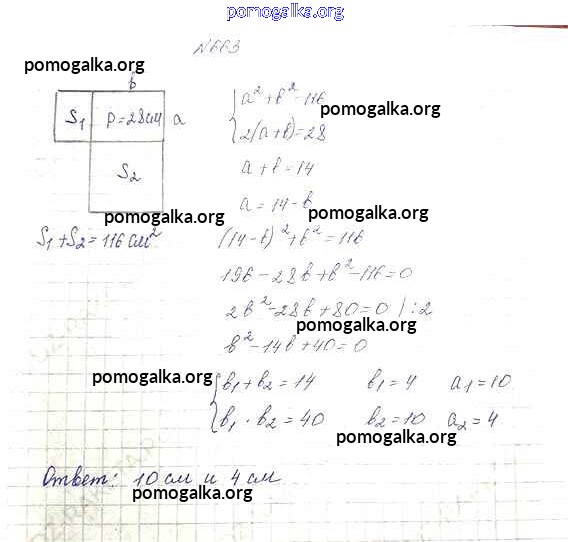 pomogalka.org
N663
pomogalka.org
b
S₁ P=28см a
S₂
S₁+S₂=116 см²
a²+b²=116
pomogalka.org
2(a+b)=28
a+b=14
a=14-b
pomogalka.org pomogalka.org
(14-b)²+b²=116
196-28b+b²-116=0
2b²-28b+80=0 /:2
pomogalka.org
b²-14b+40=0
pomogalka.org
b₁+b₂=14 b₁=4 a₁=10
b₁·b₂=40 b₂=10 a₂=4
pomogalka.org
Ответ: 10 см и 4 см
pomogalka.org